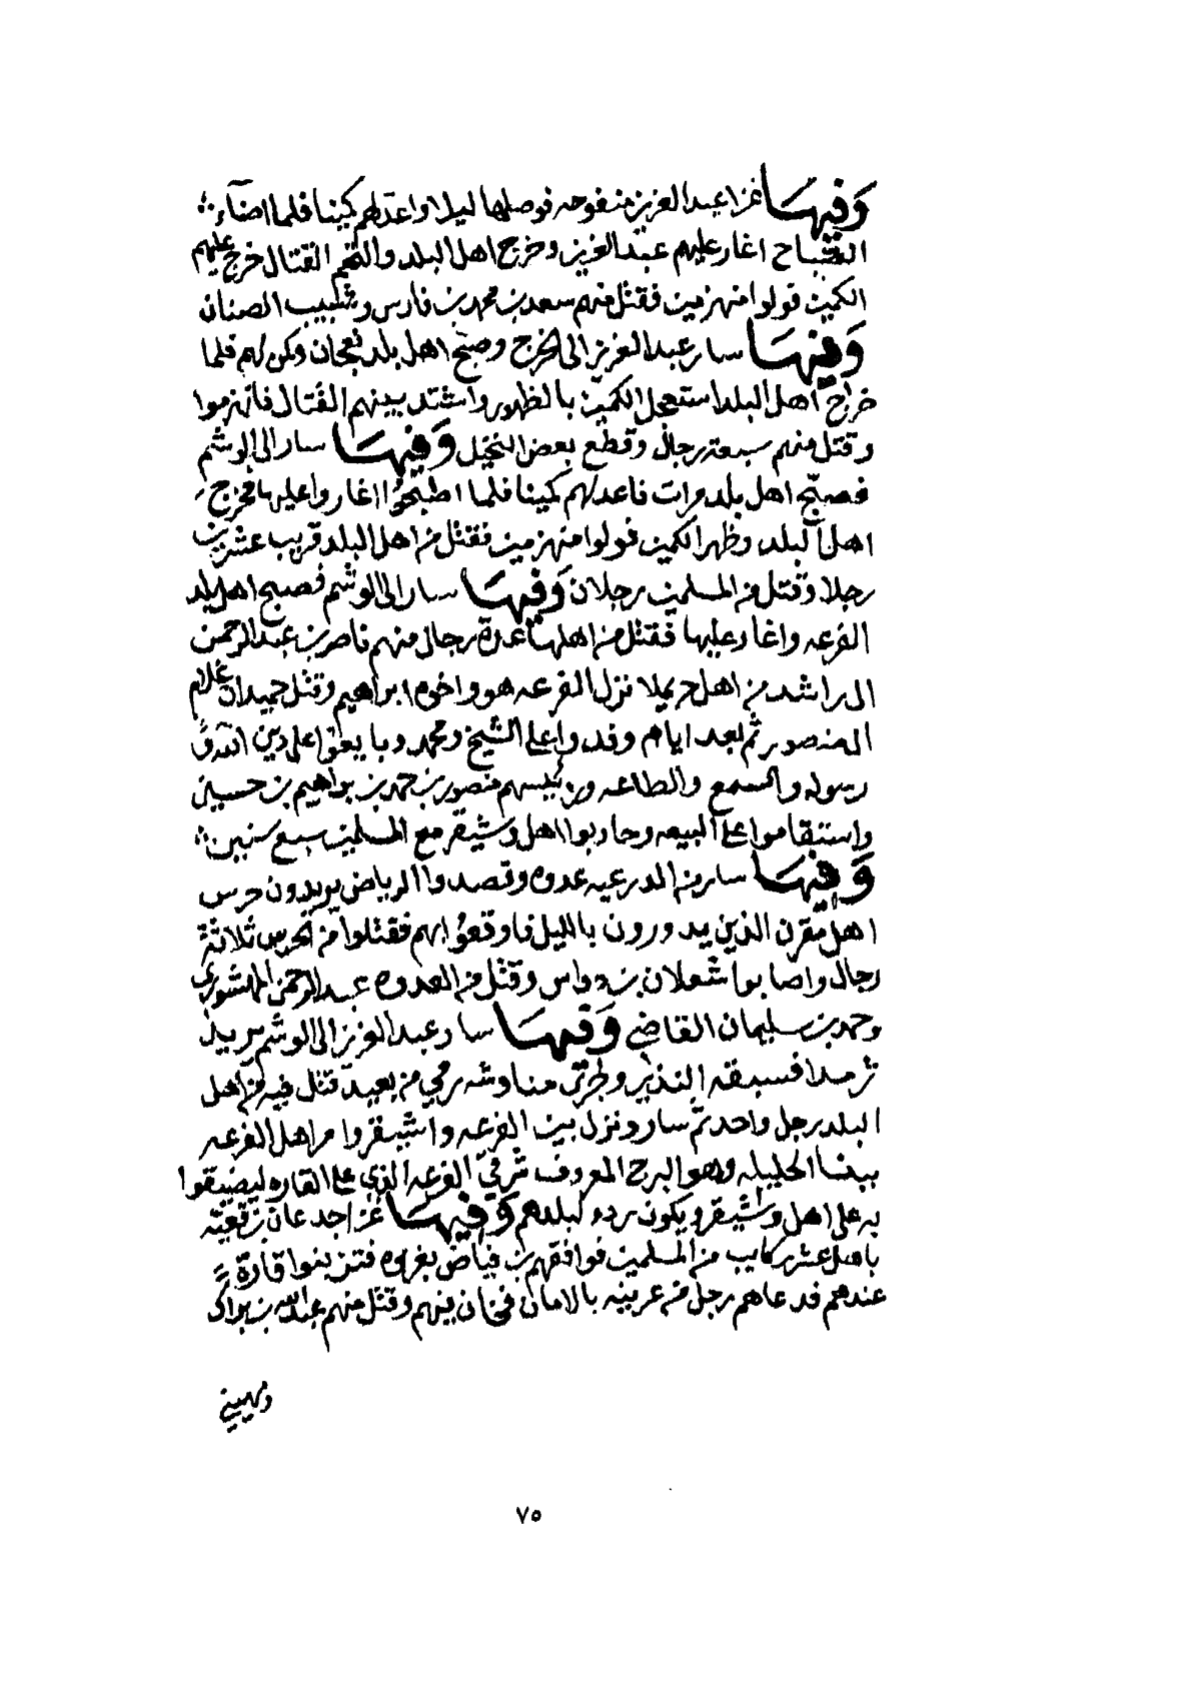 وَفِيهَا غزا عبدالعزيز منفوحه فوصلها ليلا واعد لهم كمينا فلما اضآء
الصباح اغار عليهم عبدالعزيز وخرج اهل البلد والتحم القتال خرج عليهم
الكمين فولوا منهزمين فقتل منهم سعد بن محمد بن فارس وشبيب الصنان
وَفِيهَا سار عبدالعزيز الى الخرج وصبح اهل بلد نعجان وكمن لهم فلما
خراج اهل البلد استعجل الكمين بالظهور واشتد بينهم القتال فانهزموا
وقتل منهم سبعة رجال وقطع بعض النخيل وَفِيهَا سار الى الوشم
فصبّح اهل بلد مرات فاعد لهم كمينا فلما اصبحوا اغاروا عليها فخرج
اهل البلد وظهر الكمين فولوا منهزمين فقتل من اهل البلد قريب عشرين
رجلا وقتل من المسلمين رجلان وَفِيهَا سار الى الوشم فصبح اهل بلد
الفرعه واغار عليها فقتل من اهلها عدة رجال منهم ناصر بن عبدالرحمن
الراشد من اهل حريملا نزل الفرعه هو واخوه ابراهيم وقتل حميدان غلام
المنصور ثم بعد ايام وفدوا على الشيخ ومحمد وبايعوا على دين الله و
رسوله والسمع والطاعه ورئيسهم منصور بن حمد بن ابراهيم بن حسين
واستقاموا على البيعه وحاربوا اهل وشيقر مع المسلمين سبع سنين
وَفِيهَا سار من الدرعيه عدوه وقصدوا الرياض يريدون حرس
اهل مقرن الذين يدورون بالليل فاوقعوا بهم فقتلوا من الحرس ثلاثة
رجال واصابوا شعلان بن دواس وقتل من العدوه عبدالرحمن المشوري
وحمد بن سليمان القاضي وَفِيهَا سار عبدالعزيز الى الوشم يريد
ثرمدا فسبقه النذير وجرى مناوشه رمي من بعيد قتل فيه من اهل
البلد رجل واحد ثم سار ونزل بين الفرعه واشيقر وامر اهل الفرعه
ببنا الحليله وهو البرج المعروف شرقيّ الفرعه الذي على القاره ليضيقوا
به على اهل وشيقر ويكون ردء لبلدهم وَفِيهَا غزا جدعان بن قعيته
باهل عشر ركايب من المسلمين فوافقهم بن فياض بغزوه فتزبنوا قارة
عندهم فدعاهم رجل من عرينه بالامان فخان بينهم وقتل منهم عبدالله بن براك
٧٥